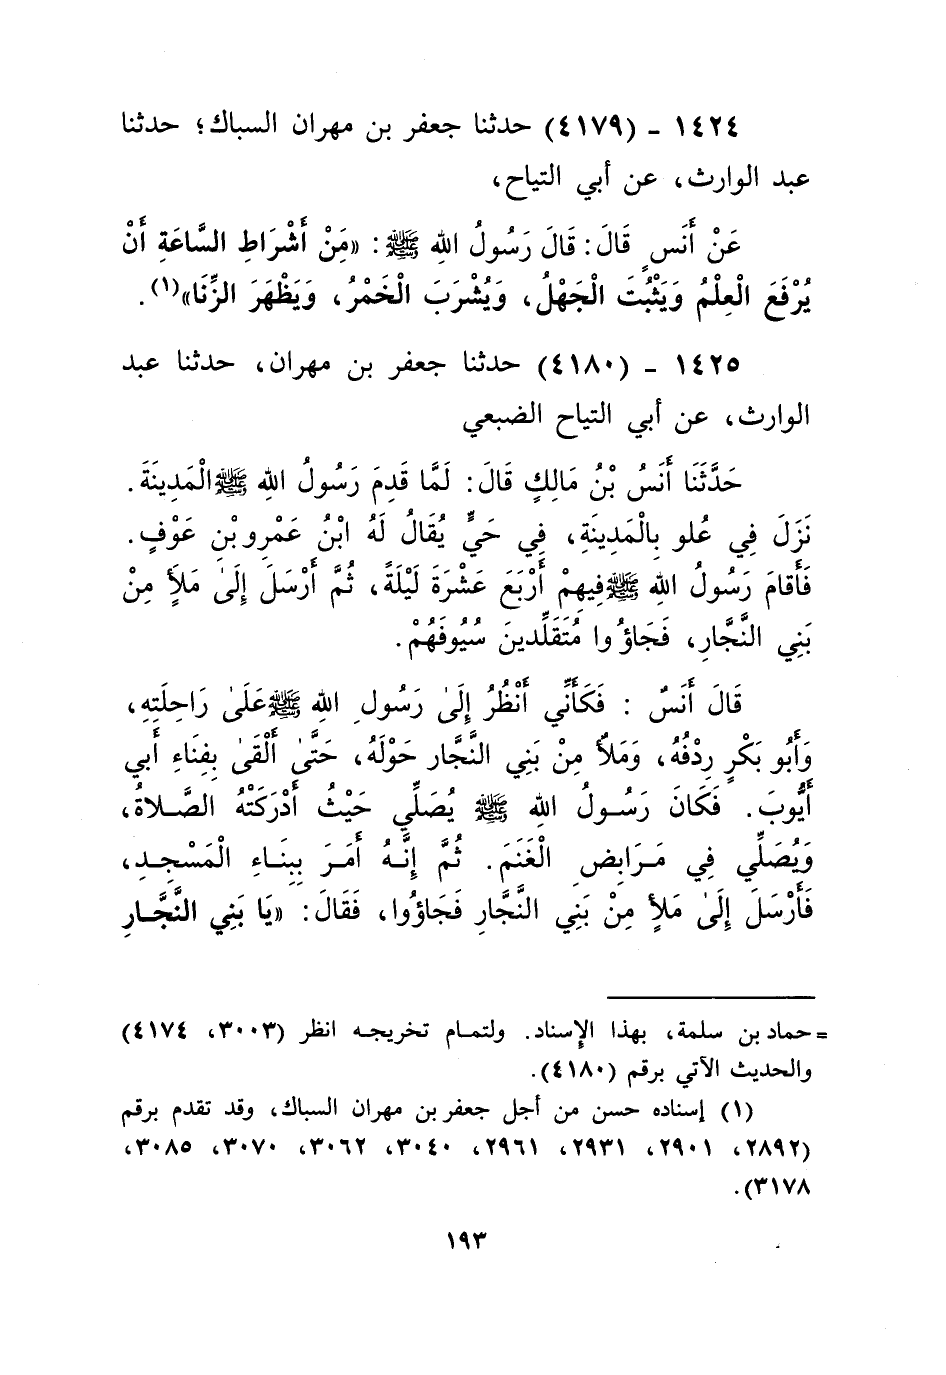 ١٤٢٤ - (٤١٧٩) حدثنا جعفر بن مهران السباك؛ حدثنا
عبد الوارث، عن أبي التياح،
عَنْ أَنَسٍ قَالَ: قَالَ رَسُولُ اللهِ ﷺ: «مَنْ أَشْرَاطِ السَّاعَةِ أَنْ
يُرْفَعَ الْعِلْمُ وَيَثْبُتَ الْجَهْلُ، وَيُشْرَبَ الْخَمْرُ، وَيَظْهَرَ الزِّنَا»(١).
١٤٢٥ - (٤١٨٠) حدثنا جعفر بن مهران، حدثنا عبد
الوارث، عن أبي التياح الضبعي
حَدَّثَنَا أَنَسُ بْنُ مَالِكٍ قَالَ: لَمَّا قَدِمَ رَسُولُ اللهِ ﷺ الْمَدِينَةَ.
نَزَلَ فِي عُلو بِالْمَدِينَةِ، فِي حَيٍّ يُقَالُ لَهُ ابْنُ عَمْرِو بْنِ عَوْفٍ.
فَأَقامَ رَسُولُ اللهِ ﷺ فِيهِمْ أَرْبَعَ عَشْرَةَ لَيْلَةً، ثُمَّ أَرْسَلَ إِلَىٰ مَلَأٍ مِنْ
بَنِي النَّجَّارِ، فَجَاؤُوا مُتَقَلِّدينَ سُيُوفَهُمْ.
قَالَ أَنَسٌ : فَكَأَنِّي أَنْظُرُ إِلَىٰ رَسُولِ اللهِ ﷺ عَلَىٰ رَاحِلَتِهِ،
وَأَبُو بَكْرٍ رِدْفُهُ، وَمَلأٌ مِنْ بَنِي النَّجَّار حَوْلَهُ، حَتَّىٰ أَلْقَىٰ بِفِنَاءِ أَبي
أَيُّوبَ. فَكَانَ رَسُولُ اللهِ ﷺ يُصَلِّي حَيْثُ أَدْرَكَتْهُ الصَّلاةُ،
وَيُصَلِّي فِي مَرَابِضِ الْغَنَمَ. ثُمَّ إِنَّهُ أَمَرَ بِبِنَاءِ الْمَسْجِدِ،
فَأَرْسَلَ إِلَىٰ مَلأٍ مِنْ بَنِي النَّجَّارِ فَجَاؤُوا، فَقَالَ: «يَا بَنِي النَّجَّارِ
= حماد بن سلمة، بهذا الإسناد. ولتمام تخريجه انظر (٣٠٠٣، ٤١٧٤)
والحديث الآتي برقم (٤١٨٠).
(١) إسناده حسن من أجل جعفر بن مهران السباك، وقد تقدم برقم
(٢٨٩٢، ٢٩٠١، ٢٩٣١، ٢٩٦١، ٣٠٤٠، ٣٠٦٢، ٣٠٧٠، ٣٠٨٥،
٣١٧٨).
١٩٣